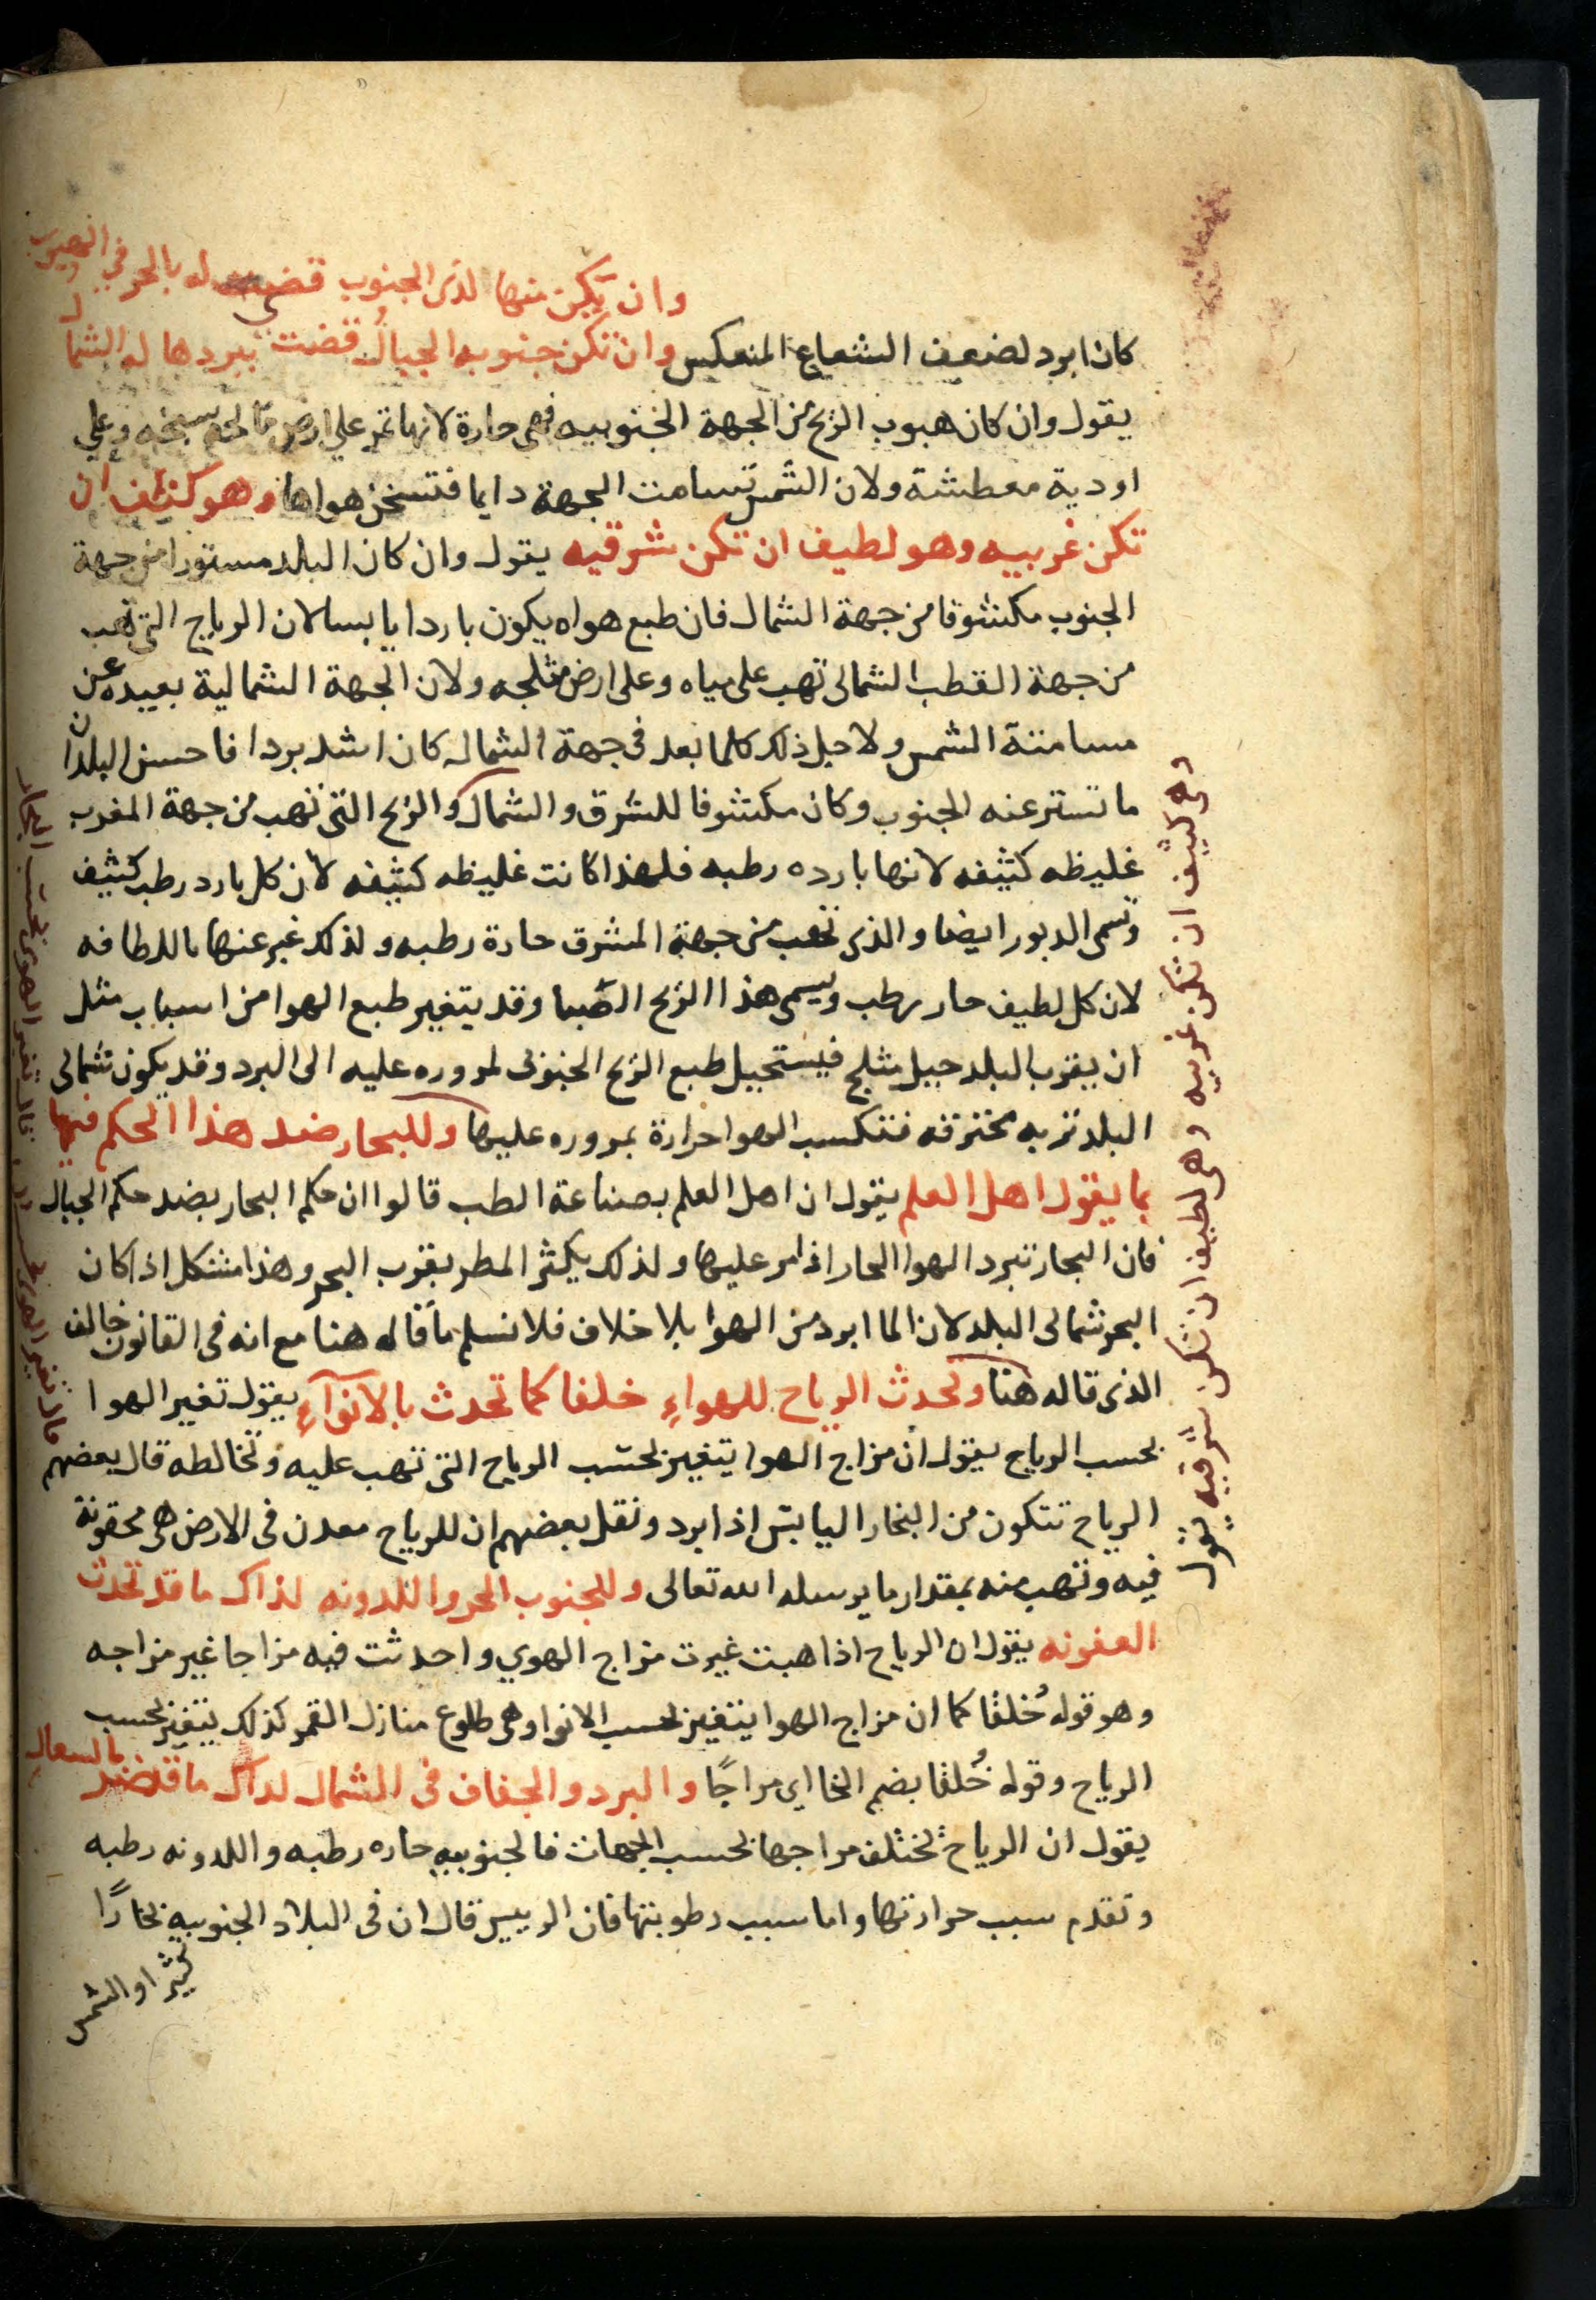 وان يكن منها لذى الجنوب قضى له بالحر في الهبوب
كان ابرد لضعف الشعاع المنعكس وان تكن جنوبه الجبال قضت ببردها له الشمال
يقول وان كان هبوب الريح من الجهة الجنوبيه فهى حارة لانها تمر على ارض مالحه سبخه وعلى
اودية معطشة ولان الشمس تسامت الجهة دايما فتسخن هواها وهو كثيف ان
تكن غربيه وهو لطيف ان تكن شرقيه يقول وان كان البلد مستورا من جهة
الجنوب مكشوفا من جهة الشمال فان طبع هواه يكون باردا يابسا لان الرياح التى تهب
من جهة القطب الشمالى تهب على مياه وعلى ارض مثلجه ولان الجهة الشمالية بعيده عن
مسامتة الشمس ولاجل ذلك كلما بعد فى جهة الشمال كان اشد بردا فاحسن البلدان
ما تستر عنه الجنوب وكان مكشوفا للشرق والشمال والريح التى تهب من جهة المغرب
غليظه كثيفه لانها بارده رطبه فلهذا كانت غليظه كثيفه لان كل بارد رطب كثيف
وتسمى الدبور ايضا والذى تهب من جهة المشرق حارة رطبه ولذلك عبر عنها باللطافه
لان كل لطيف حار رطب ويسمى هذا الريح الصبا وقد يتغير طبع الهوا من اسباب مثل
ان يقرب البلد جبل مثلج فيستحيل طبع الريح الجنوبى لمروره عليه الى البرد وقد يكون شمالى
البلد تربه محترقه فتكسب الهوا حرارة بمروره عليها وللبحار ضد هذا الحكم فيها
بما يقول اهل العلم يقول ان اهل العلم بصناعة الطب قالوا ان حكم البحار بضد حكم الجبال
فان البحار تبرد الهوا الحار اذا مر عليها ولذلك يكثر المطر بقرب البحر وهذا مشكل اذا كان
البحر شمالى البلد لان الما ابرد من الهوا بلا خلاف فلا نسلم ما قاله هنا مع انه فى القانون خالف
الذى قاله هنا وتحدث الرياح للهواء خلفا كما تحدث بالانوآء يقول تغير الهوا
بحسب الرياح يقول ان مزاج الهوا يتغير بحسب الرياح التى تهب عليه وتخالطه قال بعضهم
الرياح تتكون من البخار اليابس اذا برد ونقل بعضهم ان للرياح معدن فى الارض هى محقونة
فيه وتهب منه بمقدار ما يرسله الله تعالى وللجنوب الحر واللدونه لذاك ما قد تحدث
العفونه يقول ان الرياح اذا هبت غيرت مزاج الهوى واحدثت فيه مزاجا غير مزاجه
وهو قوله خُلقا كما ان مزاج الهوا يتغير بحسب الانوا وهى طلوع منازل القمر كذلك يتغير بحسب
الرياح وقوله خُلقا بضم الخا اى مزاجًا والبرد والجفاف فى الشمال لذاك ما قد ضر بالسعال
يقول ان الرياح تختلف مزاجها بحسب الجهات فالجنوبيه حاره رطبه واللدونه رطبه
وتقدم سبب حرارتها واما سبب رطوبتها فان الرييس قال ان فى البلاد الجنوبيه بخارًا
كثيرا والشمس
وهى كثيف ان تكن غربيه وهى لطيف ان تكن شرقيه يقول